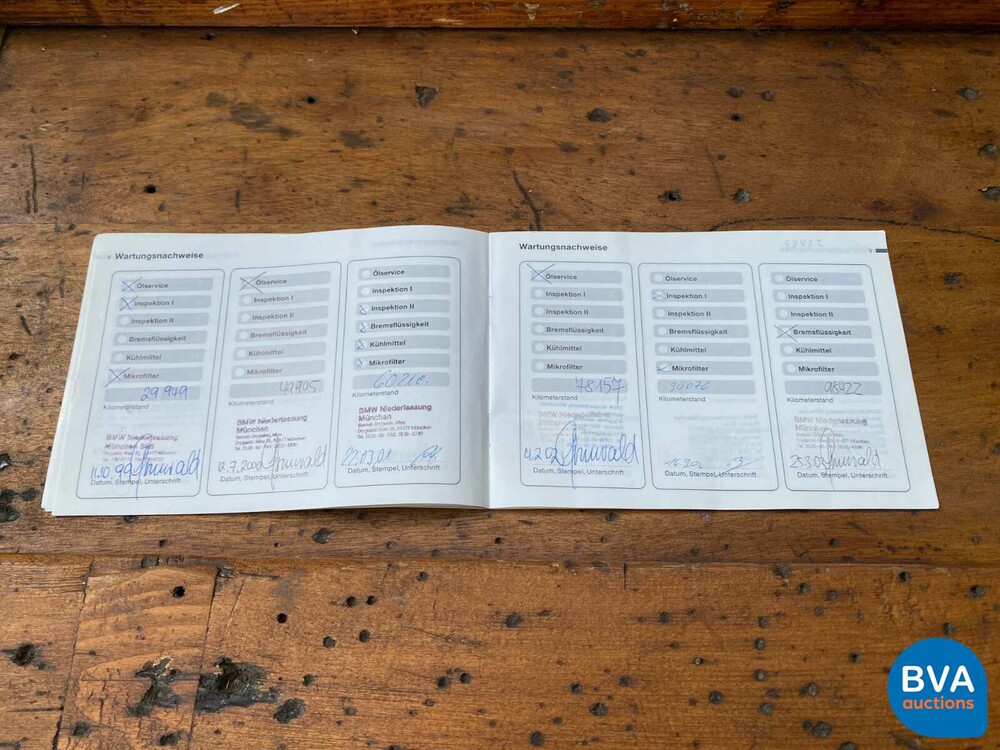 Wartungsnachweise
Ölservice
Inspektion I
Inspektion II
Bremsflüssigkeit
Kühlmittel
Mikrofilter
29 949
Kilometerstand
BMW Niederlassung
München Süd
11.10.99
Datum, Stempel, Unterschrift
Ölservice
Inspektion I
Inspektion II
Bremsflüssigkeit
Kühlmittel
Mikrofilter
49905
Kilometerstand
BMW Niederlassung
München
12.7.2000
Datum, Stempel, Unterschrift
Ölservice
Inspektion I
Inspektion II
Bremsflüssigkeit
Kühlmittel
Mikrofilter
Kilometerstand
BMW Niederlassung
München
22.03.01
Datum, Stempel, Unterschrift
Wartungsnachweise
Ölservice
Inspektion I
Inspektion II
Bremsflüssigkeit
Kühlmittel
Mikrofilter
78157
Kilometerstand
BMW Niederlassung
4.2.02
Datum, Stempel, Unterschrift
Ölservice
Inspektion I
Inspektion II
Bremsflüssigkeit
Kühlmittel
Mikrofilter
Kilometerstand
Datum, Stempel, Unterschrift
Ölservice
Inspektion I
Inspektion II
Bremsflüssigkeit
Kühlmittel
Mikrofilter
Kilometerstand
BMW Niederlassung
München
25.3.03
Datum, Stempel, Unterschrift
BVA
auctions